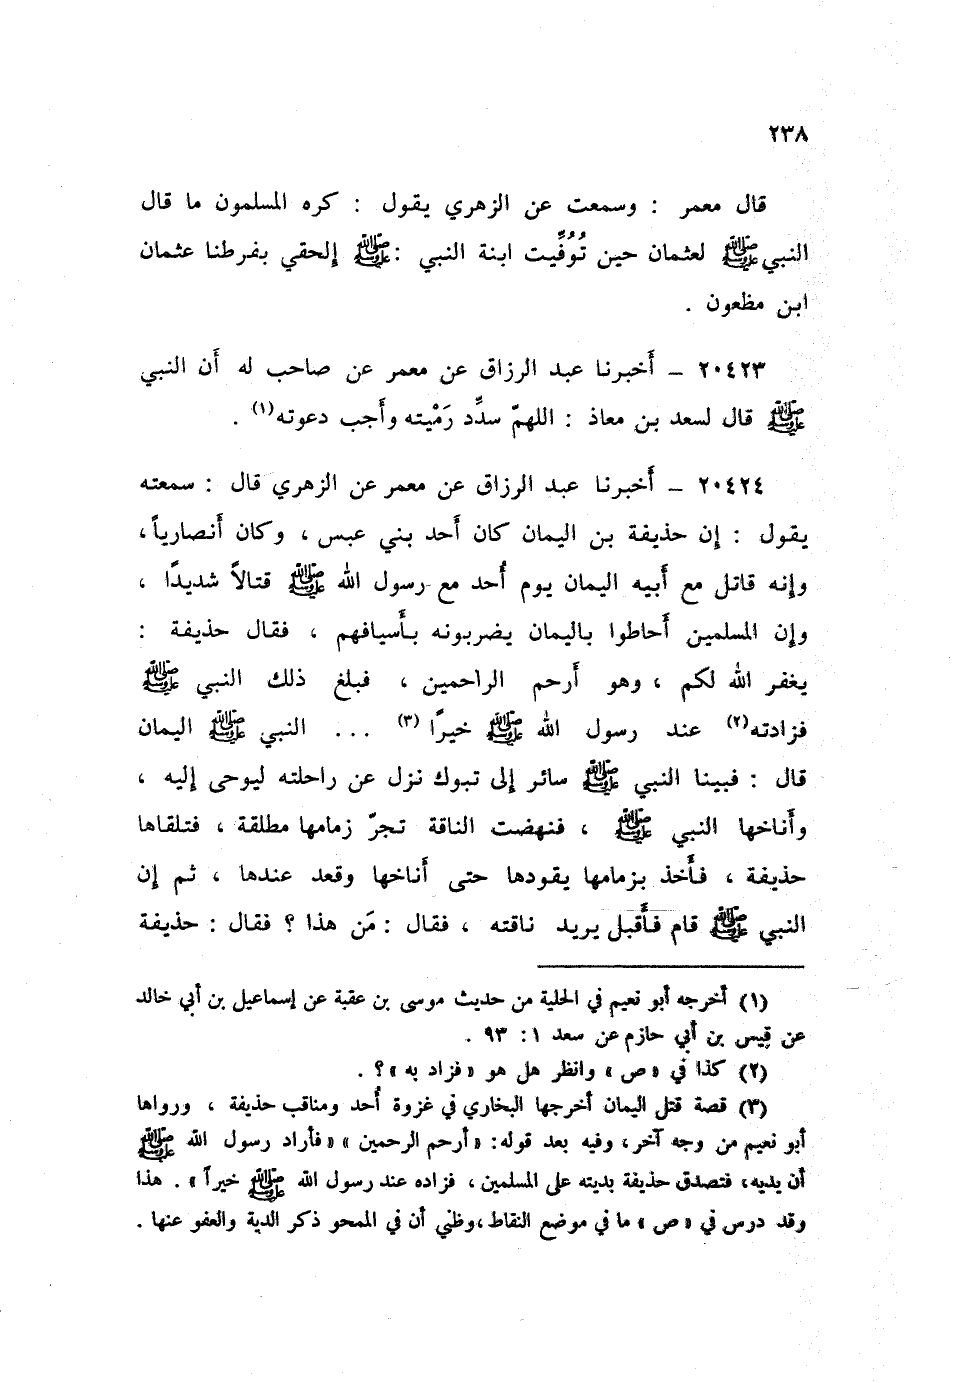 ٢٣٨
قال معمر : وسمعت عن الزهري يقول : كره المسلمون ما قال
النبي ﷺ لعثمان حين تُوُفِّيت ابنة النبي ﷺ : إلحقي بفرطنا عثمان
ابن مظعون .
٢٠٤٢٣ ــ أَخبرنا عبد الرزاق عن معمر عن صاحب له أَن النبي
ﷺ قال لسعد بن معاذ : اللهمّ سدِّد رَمْيته وأَجب دعوته(١) .
٢٠٤٢٤ ــ أَخبرنا عبد الرزاق عن معمر عن الزهري قال : سمعته
يقول : إن حذيفة بن اليمان كان أَحد بني عبس ، وكان أَنصارياً،
وإنه قاتل مع أَبيه اليمان يوم أُحد مع رسول الله ﷺ قتالاً شديدًا ،
وإن المسلمين أَحاطوا باليمان يضربونه بأَسيافهم ، فقال حذيفة :
يغفر الله لكم ، وهو أَرحم الراحمين ، فبلغ ذلك النبي ﷺ
فزادته(٢) عند رسول الله ﷺ خيرًا (٣) ... النبي ﷺ اليمان
قال : فبينا النبي ﷺ سائر إلى تبوك نزل عن راحلته ليوحى إليه ،
وأَناخها النبي ﷺ ، فنهضت الناقة تجرّ زمامها مطلقة ، فتلقاها
حذيفة ، فأَخذ بزمامها يقودها حتى أَناخها وقعد عندها ، ثم إن
النبي ﷺ قام فأَقبل يريد ناقته ، فقال : مَن هذا ؟ فقال : حذيفة
(١) أخرجه أبو نعيم في الحلية من حديث موسى بن عقبة عن إسماعيل بن أبي خالد
عن قيس بن أبي حازم عن سعد ١: ٩٣ .
(٢) كذا في « ص » وانظر هل هو « فزاد به » ؟ .
(٣) قصة قتل اليمان أخرجها البخاري في غزوة أُحد ومناقب حذيفة ، ورواها
أبو نعيم من وجه آخر، وفيه بعد قوله: «أرحم الرحمين » «فأراد رسول الله ﷺ
أن يديه، فتصدق حذيفة بديته على المسلمين ، فزاده عند رسول الله ﷺ خيراً » . هذا
وقد درس في « ص » ما في موضع النقاط ،وظني أن في الممحو ذكر الدية والعفو عنها .